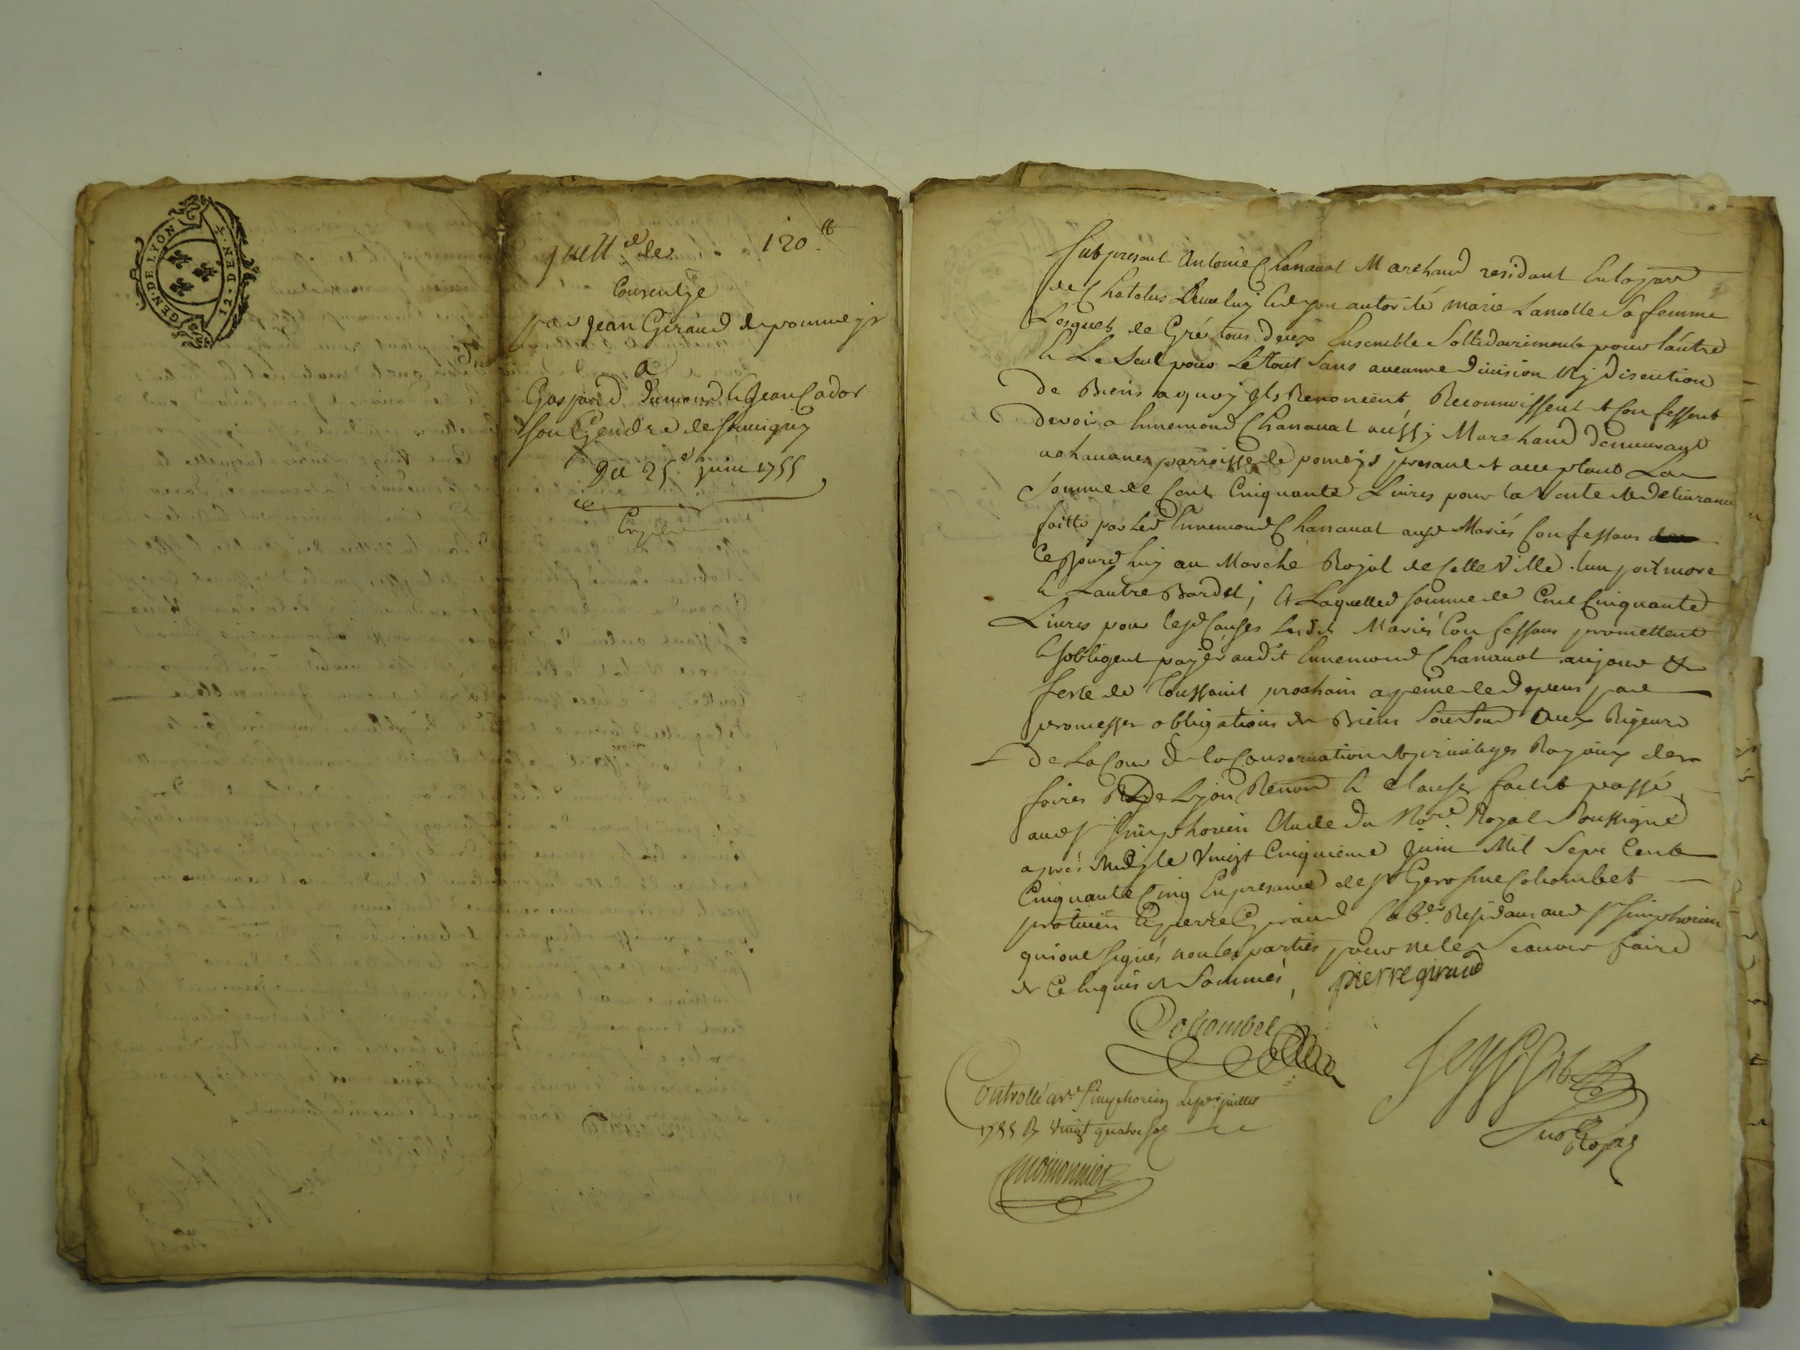 GEN·DE·LYON
12·DEN·4
quitt.ce de 120.#
Consentye
par Jean Geraud de pommeys
a
Gaspard dumond & Jean Cador
son Gendre de Savigny
Du 25.e juin 1755
Fut present Antoine Chanavat Marchand residant en la parr
de Chatelus Lequel luy & de son autorité marie Lamotte Sa femme
Lesquels de Gré tous deux Ensemble Sollidairement pour l'autre
& Le Seul pour Le tout Sans aucunne division Ny discution
de Biens aquoy ils Renoncent Reconnoissent et Confessent
devoir a Ennemond Chanavat aussy Marchand demeurant
parroisse de pomeys present et acceptant La
Somme de Cent Cinquante Livres pour la Vente et delivrance
faitte par led Ennemond Chanavat auxd Mariés Confessans
Cejourd'huy au Marché Royal de Cette Ville
& Lautre Bardet; et Laquelle somme de Cent Cinquante
Livres pour lesd Causes Lesdits Mariés Confessans promettent
& s'obligent payer audit Ennemond Chanavat au jour &
feste de Toussaint prochain a peine de depens par
promesses obligations de Biens aux Rigeurs
de La Cour de la Conservation et privileges Royaux des
foires de Lyon Renon & Clauses fait et passé
aud St Simphorien Etude du No.re Royal Soussigné
aprés Midy le Vingt Cinquieme Juin Mil Sept Cent
Cinquante Cinq En presence de Sr Gerosme Cohombet
praticien et pierre Giraud Cab.er Residans aud St Simphorien
qui ont signés non les parties pour ne le Scavoir faire
de Ce Enquis et Sommés, pierre giraud
Cohombet
Controllé a St Simphorien Le pr juillet
1755 R Vingt quatre sols
Not Royal